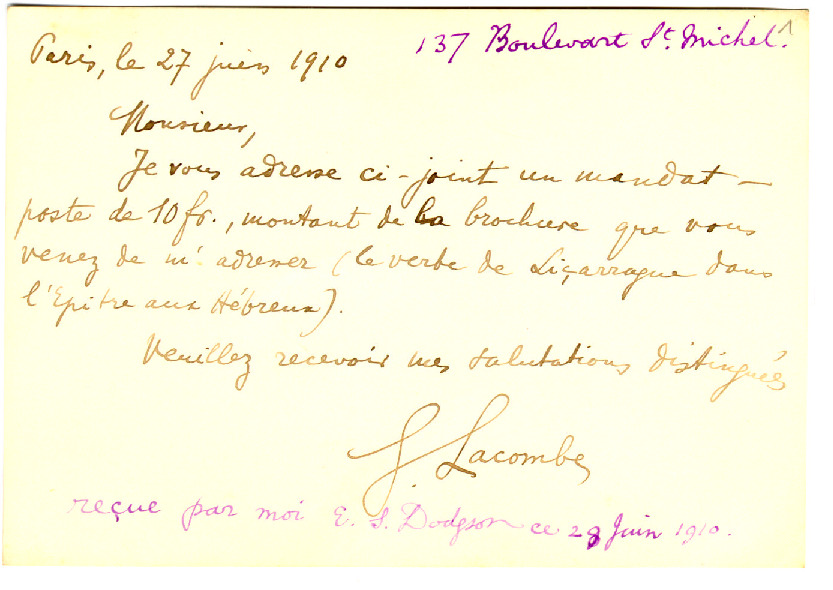 137 Boulevart St. Michel.
Paris, le 27 juin 1910
Monsieur,
Je vous adresse ci-joint un mandat-
poste de 10 fr., montant de la brochure que vous
venez de m'adresser (le verbe de Liçarrague dans
l'Epitre aux Hébreux).
Veuillez recevoir mes salutations distinguées
G. Lacombe
reçue par moi E. S. Dodgson ce 28 Juin 1910.